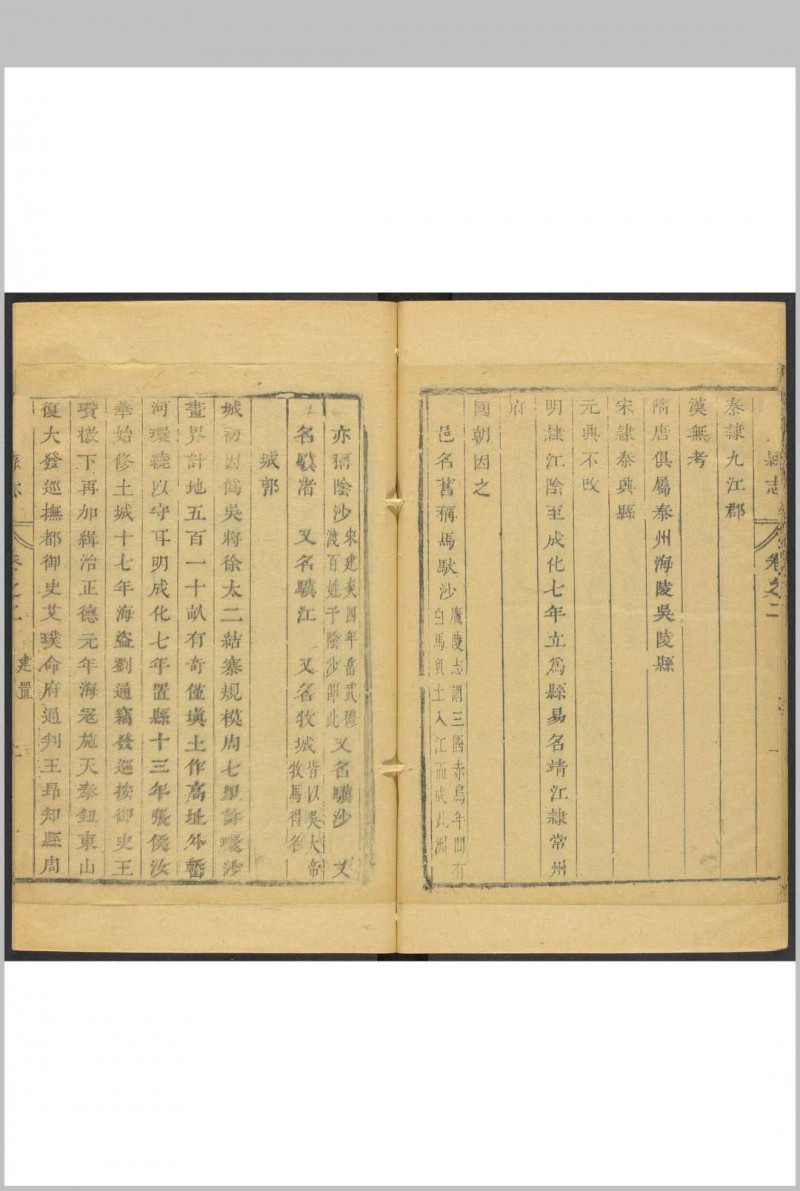 縣志
卷之二
秦隷九江郡
漢無考
隋唐俱屬泰州海陵吳陵縣
宋隷泰興縣
元典不改
明隷江陰至成化七年立爲縣易名靖江隷常州
府
國朝因之
邑名舊稱馬馱沙
廣陵志謂三國赤烏年間有
白馬負土入江而成此洲
亦稱陰沙
宋建炎四年岳武穆
渡百姓于陰沙即此
又名驥沙 又
名驥渚 又名驥江 又名牧城
皆以吳大帝
牧馬得名
城郭
城初因僞吳將徐太二結寨規模周七里許環沙
畫界計地五百一十畝有奇僅塡土作高址外
河環繞以守耳明成化七年置縣十三年張侯汝
華始修土城十七年海盜劉通竊發巡按御史王
瓚檄下再加緝治正德元年海寇施天泰鈕東山
復大發巡撫都御史艾璞命府通判王昂知縣周
卷之二
建置